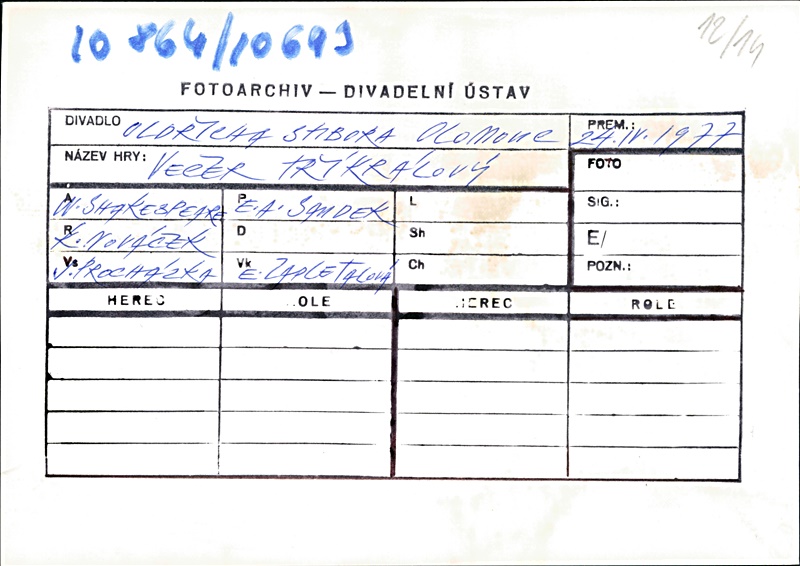 10 864/10693
12/14
FOTOARCHIV — DIVADELNÍ ÚSTAV
DIVADLO OLDŘICHA STIBORA OLOMOUC PREM.: 24.IV.1977
NÁZEV HRY: VEČER TŘÍKRÁLOVÝ FOTO
A W. SHAKESPEARE P E.A. SAUDEK L SIG.:
R K. NOVÁČEK D Sh E/
Vs J. PROCHÁZKA Vk E. ZAPLETALOVÁ Ch POZN.:
HEREC OLE HEREC ROLE